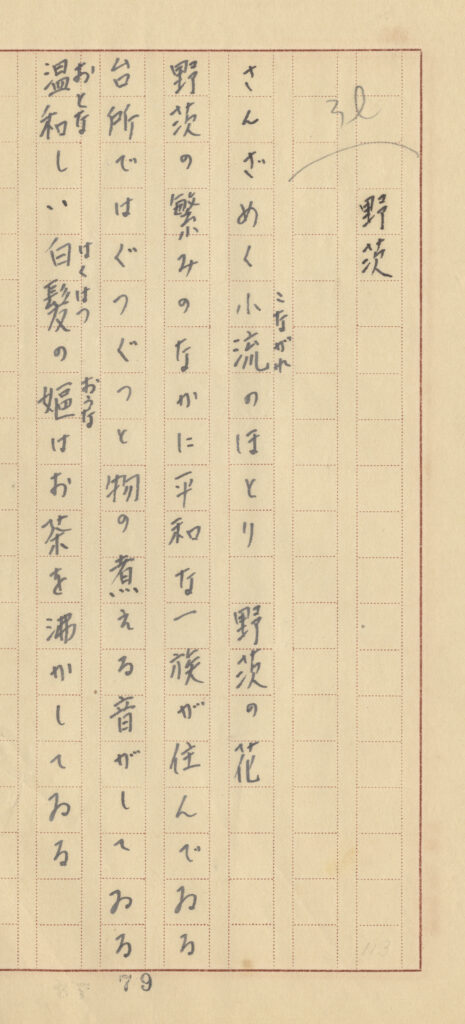 3l
野茨
さんざめく小流のほとり　野茨の花
こながれ
野茨の繁みのなかに平和な一族が住んでゐる
台所ではぐつぐつと物の煮える音がしてゐる
温和しい白髪の嫗はお茶を沸かしてゐる
おとな
はくはつ
おうな
79
113